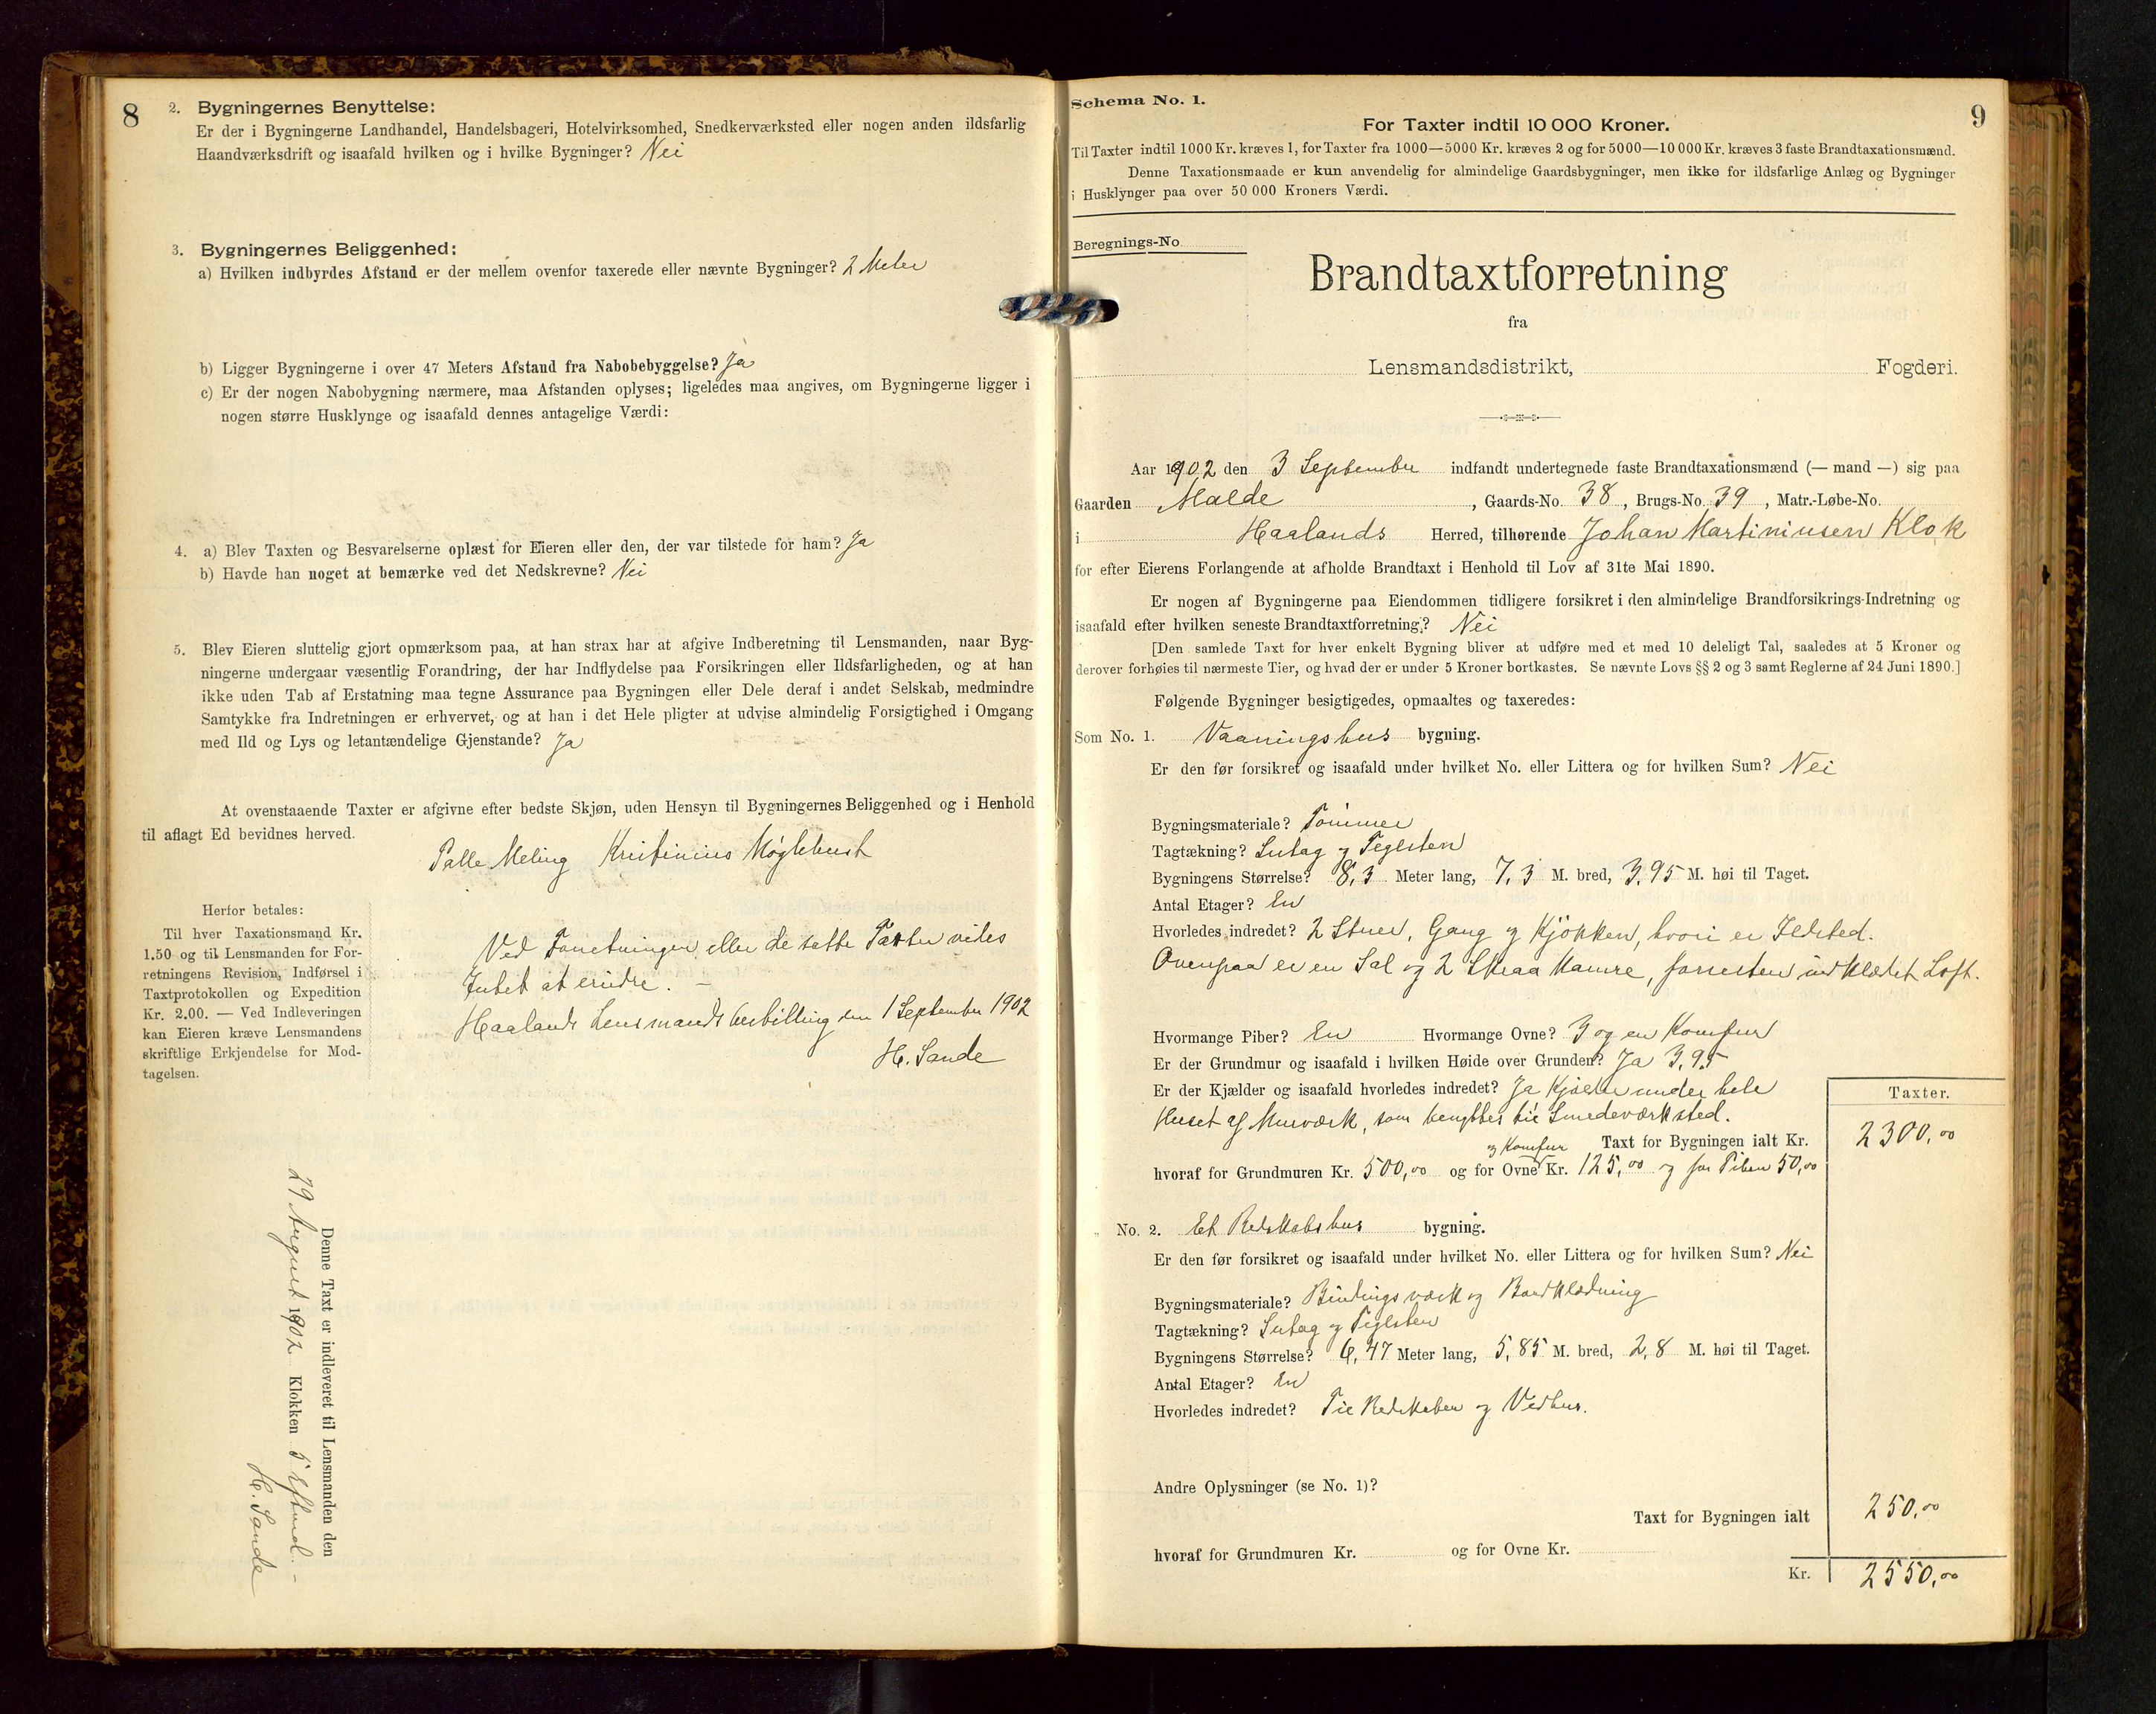 8
2. Bygningernes Benyttelse:
Er der i Bygningerne Landhandel, Handelsbageri, Hotelvirksomhed, Snedkerværksted eller nogen anden ildsfarlig
Haandværksdrift og isaafald hvilken og i hvilke Bygninger? Nei
3. Bygningernes Beliggenhed:
a) Hvilken indbyrdes Afstand er der mellem ovenfor taxerede eller nævnte Bygninger? 2 Meter
b) Ligger Bygningerne i over 47 Meters Afstand fra Nabobebyggelse? Ja
c) Er der nogen Nabobygning nærmere, maa Afstanden oplyses; ligeledes maa angives, om Bygningerne ligger i
nogen større Husklynge og isaafald dennes antagelige Værdi:
4. a) Blev Taxten og Besvarelserne oplæst for Eieren eller den, der var tilstede for ham? Ja
b) Havde han noget at bemærke ved det Nedskrevne? Nei
5. Blev Eieren sluttelig gjort opmærksom paa, at han strax har at afgive Indberetning til Lensmanden, naar Byg-
ningerne undergaar væsentlig Forandring, der har Indflydelse paa Forsikringen eller Ildsfarligheden, og at han
ikke uden Tab af Erstatning maa tegne Assurance paa Bygningen eller Dele deraf i andet Selskab, medmindre
Samtykke fra Indretningen er erhvervet, og at han i det Hele pligter at udvise almindelig Forsigtighed i Omgang
med Ild og Lys og letantændelige Gjenstande? Ja
At ovenstaaende Taxter er afgivne efter bedste Skjøn, uden Hensyn til Bygningernes Beliggenhed og i Henhold
til aflagt Ed bevidnes herved.
Palle Meling Kristinius
Herfor betales:
Til hver Taxationsmand Kr.
1.50 og til Lensmanden for For-
retningens Revision, Indførsel i
Taxtprotokollen og Expedition
Kr. 2.00. — Ved Indleveringen
kan Eieren kræve Lensmandens
skriftlige Erkjendelse for Mod-
tagelsen.
Ved Forretningen eller de satte Taxter vides
Intet at erindre. —
Haalands Lensmandsbestilling den 1 September 1902
H. Sande
Denne Taxt er indleveret til Lensmanden den
29 August 1902 Klokken 5 Eftmd. -
H. Sande
Schema No. 1.
9
For Taxter indtil 10 000 Kroner.
Til Taxter indtil 1000 Kr. kræves 1, for Taxter fra 1000—5000 Kr. kræves 2 og for 5000—10 000 Kr. kræves 3 faste Brandtaxationsmænd.
Denne Taxationsmaade er kun anvendelig for almindelige Gaardsbygninger, men ikke for ildsfarlige Anlæg og Bygninger
i Husklynger paa over 50 000 Kroners Værdi.
Beregnings-No
Brandtaxtforretning
fra
Lensmandsdistrikt, Fogderi.
Aar 1902 den 3 September indfandt undertegnede faste Brandtaxationsmænd (— mand —) sig paa
Gaarden Malde, Gaards-No. 38, Brugs-No. 39, Matr.-Løbe-No.
i Haalands Herred, tilhørende Johan Martiniusen Klok
for efter Eierens Forlangende at afholde Brandtaxt i Henhold til Lov af 31te Mai 1890.
Er nogen af Bygningerne paa Eiendommen tidligere forsikret i den almindelige Brandforsikrings-Indretning og
isaafald efter hvilken seneste Brandtaxtforretning? Nei
[Den samlede Taxt for hver enkelt Bygning bliver at udføre med et med 10 deleligt Tal, saaledes at 5 Kroner og
derover forhøies til nærmeste Tier, og hvad der er under 5 Kroner bortkastes. Se nævnte Lovs §§ 2 og 3 samt Reglerne af 24 Juni 1890.]
Følgende Bygninger besigtigedes, opmaaltes og taxeredes:
Som No. 1. Vaaningshus bygning.
Er den før forsikret og isaafald under hvilket No. eller Littera og for hvilken Sum? Nei
Bygningsmateriale? Tømmer
Tagtækning? Sutag og Teglsten
Bygningens Størrelse? 8,3 Meter lang, 7,3 M. bred, 3,95 M. høi til Taget.
Antal Etager? En
Hvorledes indredet? 2 Stuer, Gang og Kjøkken, hvori er Ildsted.
Ovenpaa er en Sal og 2 Skraa Kamre, forresten indklædt Loft.
Hvormange Piber? En Hvormange Ovne? 3 og en Komfur
Er der Grundmur og isaafald i hvilken Høide over Grunden? Ja 3,95
Er der Kjælder og isaafald hvorledes indredet? Ja Kjælder under hele
Huset af Murværk, som benyttes til Smedeværksted.
Taxter.
Taxt for Bygningen ialt Kr. 2300,00
og Komfur
hvoraf for Grundmuren Kr. 500,00 og for Ovne Kr. 125,00 og for Piben 50,00
" No. 2. Et Redskabshus bygning.
Er den før forsikret og isaafald under hvilket No. eller Littera og for hvilken Sum? Nei
Bygningsmateriale? Bindingsværk og Bordklædning
Tagtækning? Sutag og Teglsten
Bygningens Størrelse? 6,47 Meter lang, 5,85 M. bred, 2,8 M. høi til Taget.
Antal Etager? En
Hvorledes indredet? Til Redskaber og Vedhus.
Andre Oplysninger (se No. 1)?
Taxt for Bygningen ialt 250,00
hvoraf for Grundmuren Kr. og for Ovne Kr.
Kr. 2550,00